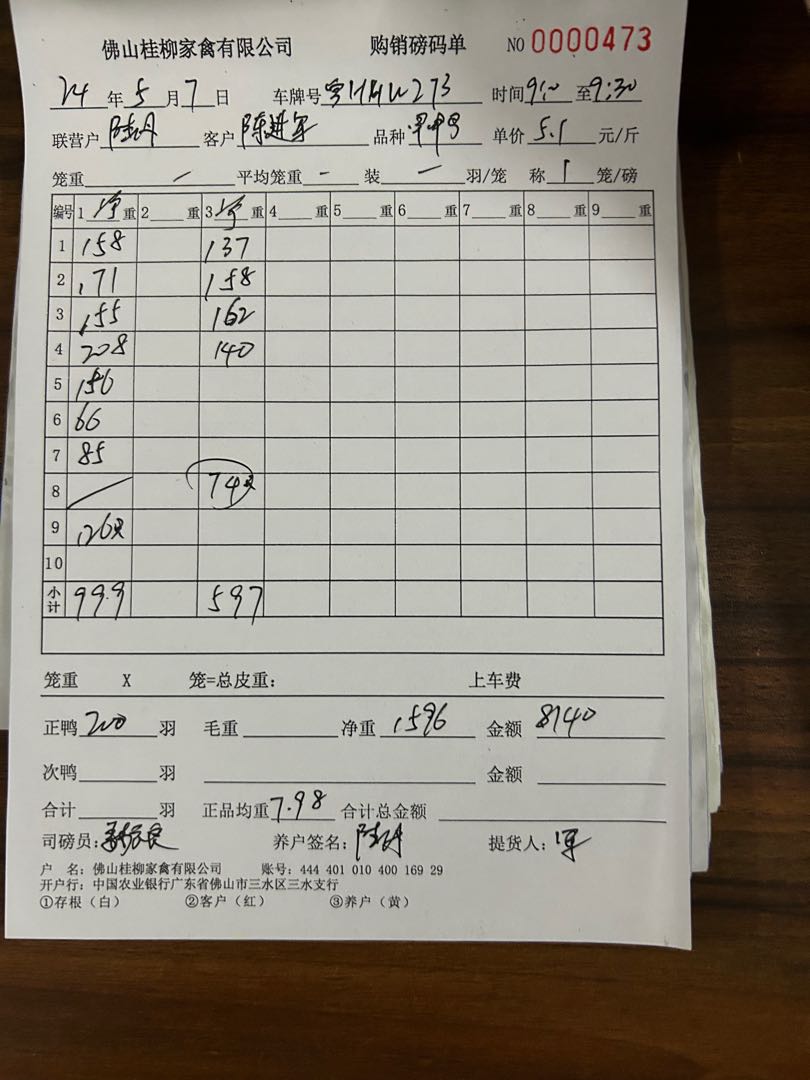 佛山桂柳家禽有限公司 购销磅码单 NO 0000473
24 年 5 月 7 日 车牌号 273 时间 9:00 至 9:30
联营户 客户 陈进军 品种 单价 5.1 元/斤
笼重 — 平均笼重 — 装 — 羽/笼 称 1 笼/磅
编号 1 净 重 2 重 3 净 重 4 重 5 重 6 重 7 重 8 重 9 重
1 158 137
2 171 158
3 155 162
4 208 140
5 156
6 66
7 85
8 / 74只
9 126只
10
小计 999 597
笼重 X 笼=总皮重: 上车费
正鸭 200 羽 毛重 净重 1596 金额 8140
次鸭 羽 金额
合计 羽 正品均重 7.98 合计总金额
司磅员: 养户签名: 提货人: 军
户 名: 佛山桂柳家禽有限公司 账号: 444 401 010 400 169 29
开户行: 中国农业银行广东省佛山市三水区三水支行
①存根(白) ②客户(红) ③养户(黄)